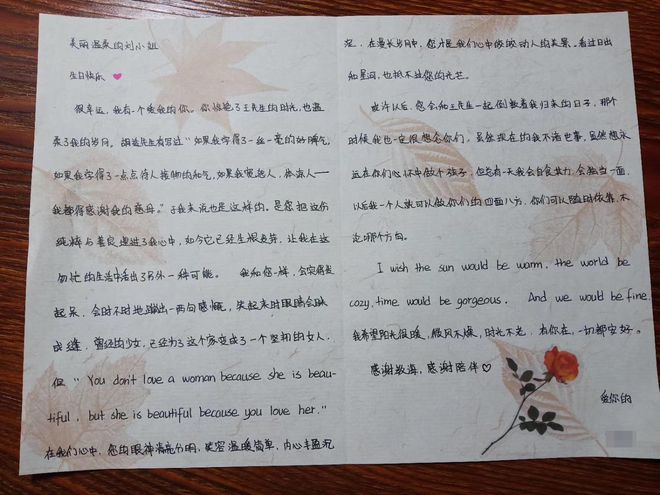 美丽温柔的刘小姐
生日快乐 ♥
很幸运，我有一个爱我的你。你惊艳了王先生的时光，也温
柔了我的岁月。胡适先生有写过“如果我学得了一丝一毫的好脾气，
如果我学得了一点点待人接物的和气，如果我宽恕人，体谅人——
我都得感谢我的慈母。”于我来说也是这样的。是您把这份
纯粹与善良埋进了我心中，如今它已经生根发芽，让我在这
匆忙的生活中活出了另外一种可能。 我和您一样，会突然发
起呆，会时不时地蹦出一两句感慨，笑起来时眼睛会眯
成缝，曾经的少女，已经为了这个家变成了一个坚韧的女人，
但 “You don't love a woman because she is beau-
tiful, but she is beautiful because you love her.”
在我们心中，您的眼神清亮分明，笑容温暖简单，内心丰盈充
沛，在漫长岁月中，您才是我们心中皎皎动人的美景。看过日出
和星河，也抵不过您的光芒。
或许以后，您会和王先生一起倒数着我归来的日子，那个
时候我也一定很想念你们，虽然现在的我不谙世事，虽然想永
远在你们心怀中做个孩子，但总有一天我会自食其力，会独当一面，
以后我一个人就可以做你们的四面八方，你们可以随时依靠，不
论哪个方向。
I wish the sun would be warm, the world be
cozy, time would be gorgeous. And we would be fine.
我希望阳光很暖，微风不燥，时光不老，有你在，一切都安好。
感谢教诲，感谢陪伴♡
爱你的